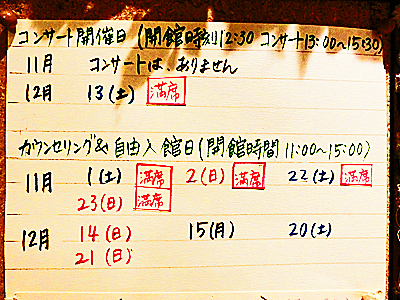 コンサート開催日(開館時刻12:30 コンサート13:00〜15:30)
11月 コンサートは、ありません
12月 13(土) 満席
カウンセリング&自由入館日(開館時間 11:00〜15:00)
11月 1(土) 満席 2(日) 満席 22(土) 満席
23(日) 満席
12月 14(日) 15(月) 20(土)
21(日)